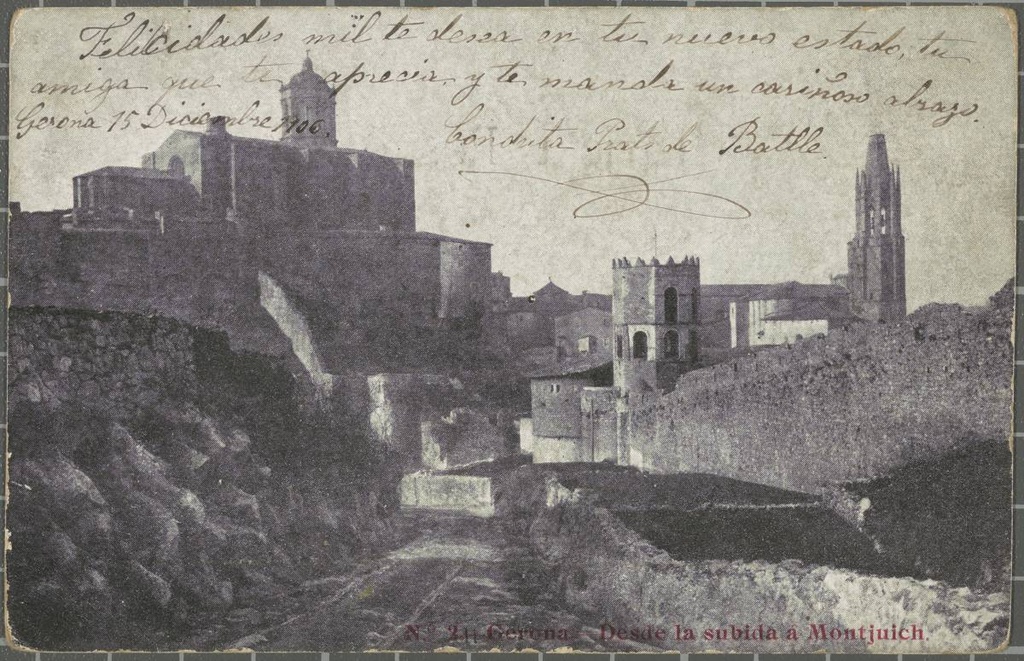 Felicidades mil te desea en tu nuevo estado, tu
amiga que te aprecia y te manda un cariñoso abrazo.
Gerona 15 Diciembre 1906.
Conchita Prats de Batlle.
Nº 21 Gerona. Desde la subida a Montjuich.